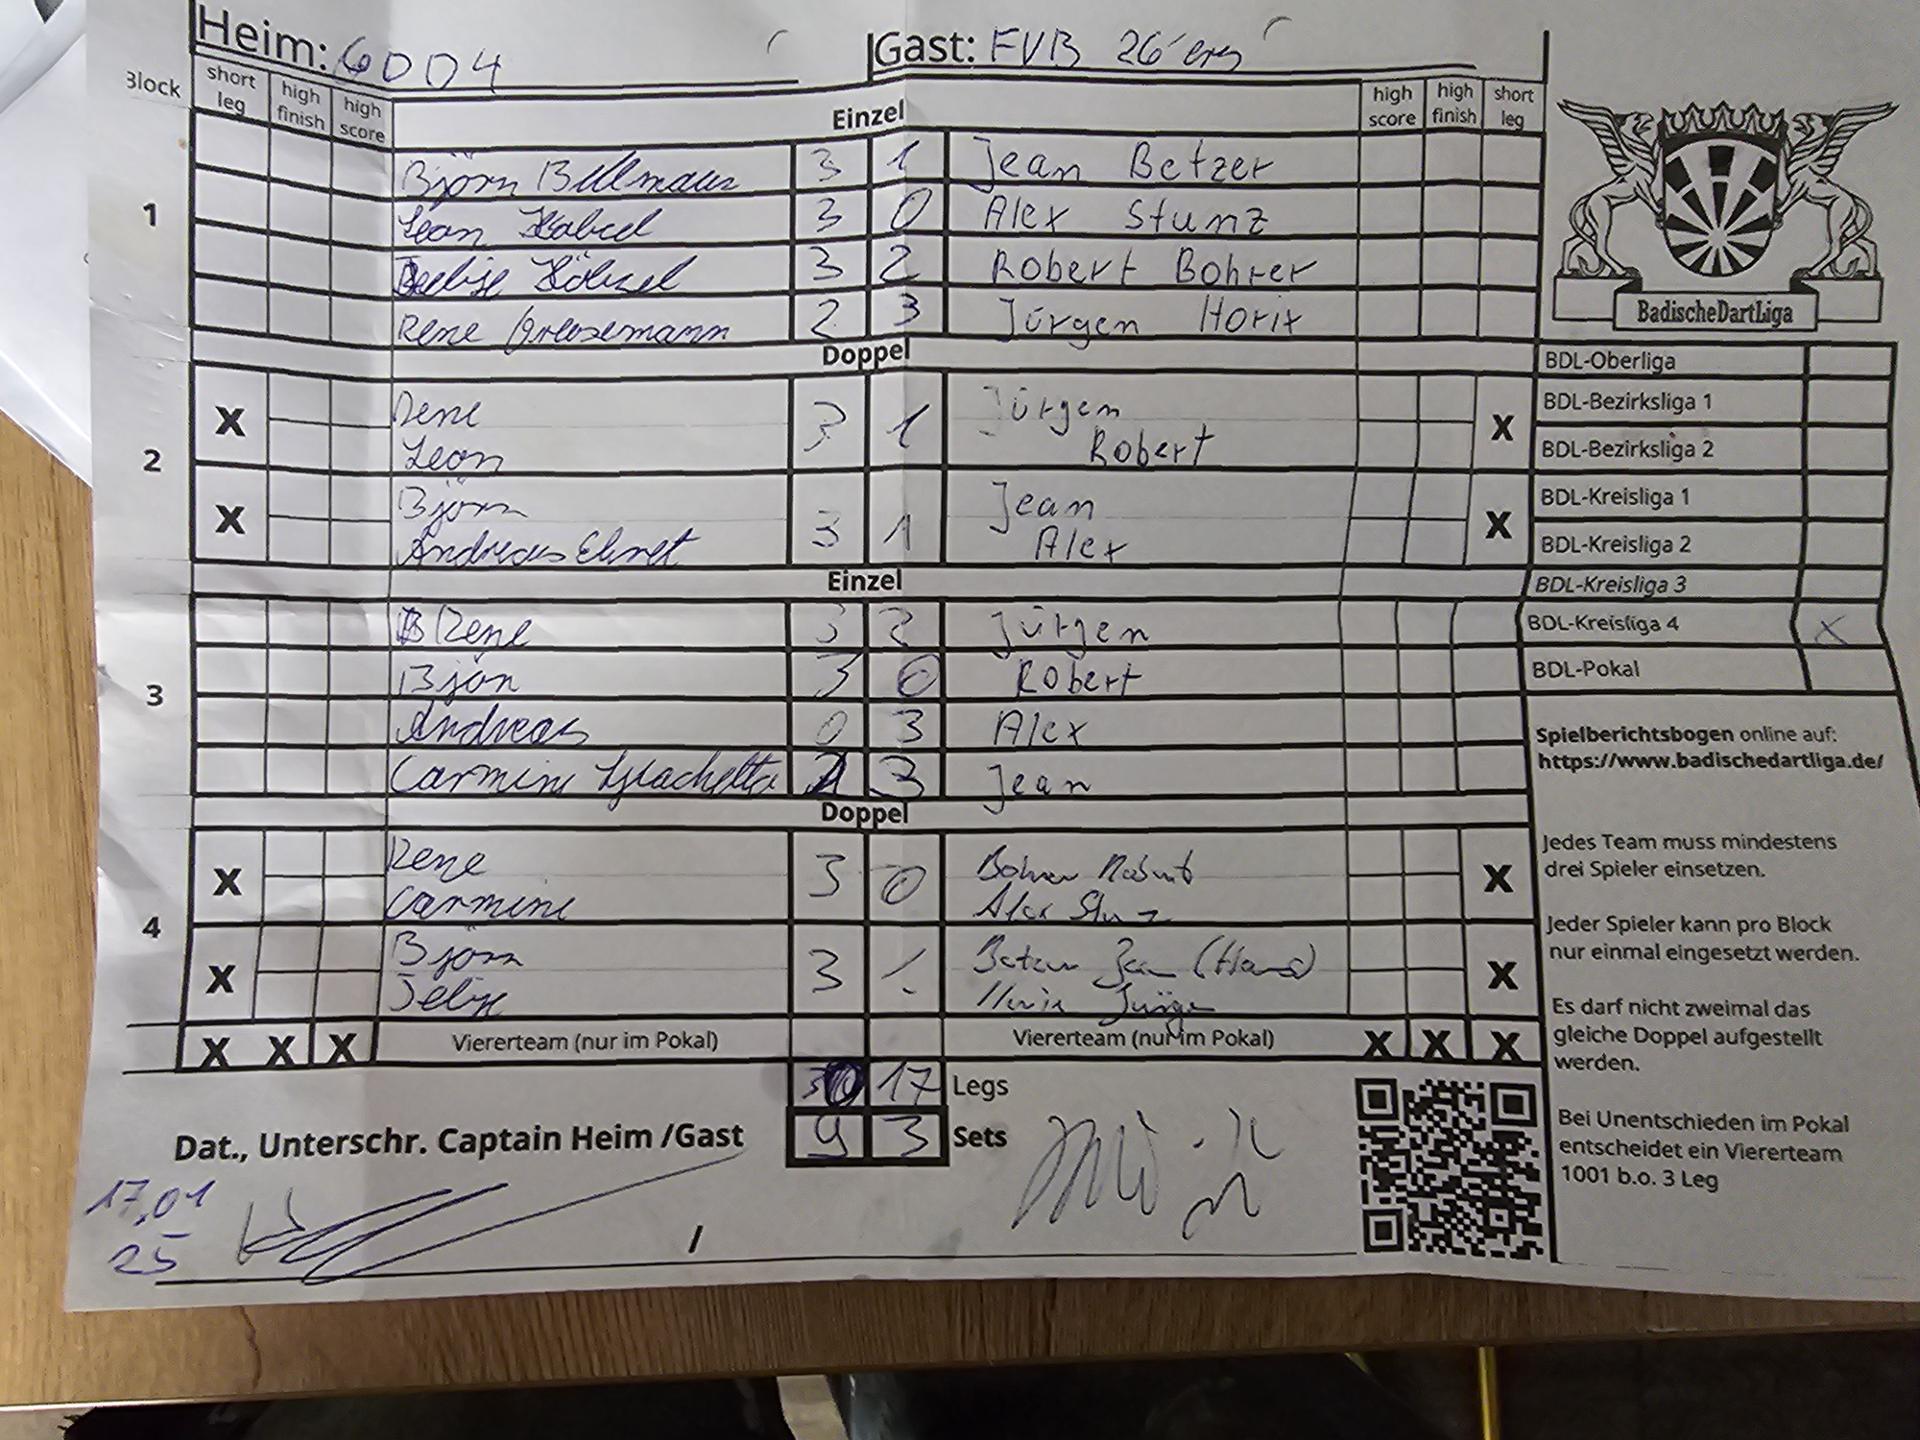 Heim: 6004 Gast: FVB 26'ers
Block short leg high finish high score Einzel high score high finish short leg
1
Björn Billmaier 3 1 Jean Betzer
Leon Hölzel 3 0 Alex Stunz
Felix Hölzel 3 2 Robert Bohrer
Rene Grossemann 2 3 Jürgen Horix
BadischeDartLiga
Doppel
2
X Rene 3 1 Jürgen X
Leon Robert
X Björn 3 1 Jean X
Andreas Alex
Einzel
3
Rene 3 2 Jürgen
Bjön 3 0 Robert
Andreas 0 3 Alex
Carmine 3 Jean
Doppel
4
X Rene 3 0 Bohrer Robert X
Carmine Alex Stunz
X Björn 3 1 Betzer Jean (Hans) X
Felix Horix Jürgen
X X X Viererteam (nur im Pokal) Viererteam (nur im Pokal) X X X
30 17 Legs
9 3 Sets
Dat., Unterschr. Captain Heim /Gast
17.01
25
/
BDL-Oberliga
BDL-Bezirksliga 1
BDL-Bezirksliga 2
BDL-Kreisliga 1
BDL-Kreisliga 2
BDL-Kreisliga 3
BDL-Kreisliga 4 X
BDL-Pokal
Spielberichtsbogen online auf:
https://www.badischedartliga.de/
Jedes Team muss mindestens
drei Spieler einsetzen.
Jeder Spieler kann pro Block
nur einmal eingesetzt werden.
Es darf nicht zweimal das
gleiche Doppel aufgestellt
werden.
Bei Unentschieden im Pokal
entscheidet ein Viererteam
1001 b.o. 3 Leg